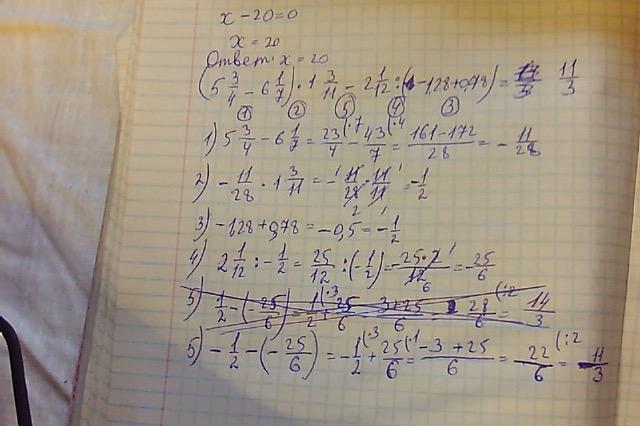 x - 20 = 0
x = 20
Ответ: x = 20
(5 3/4 - 6 1/7) · 1 3/11 - 2 1/12 : (-1,28 + 0,78) = 11/3
① ② ⑤ ④ ③
1) 5 3/4 - 6 1/7 = 23/4 (·7 - 43/7 (·4 = 161-172/28 = - 11/28
2) - 11/28 · 1 3/11 = - 11/28 · 14/11 = - 1/2
3) -1,28 + 0,78 = -0,5 = - 1/2
4) 2 1/12 : - 1/2 = 25/12 : (- 1/2) = - 25·2/12 = - 25/6
5) 1/2 - (- 25/6) = 1/2 (·3 + 25/6 = 3+25/6 = 28/6 (:2 = 14/3
5) - 1/2 - (- 25/6) = - 1/2 (·3 + 25/6 (·1 = -3 + 25/6 = 22/6 (:2 = 11/3